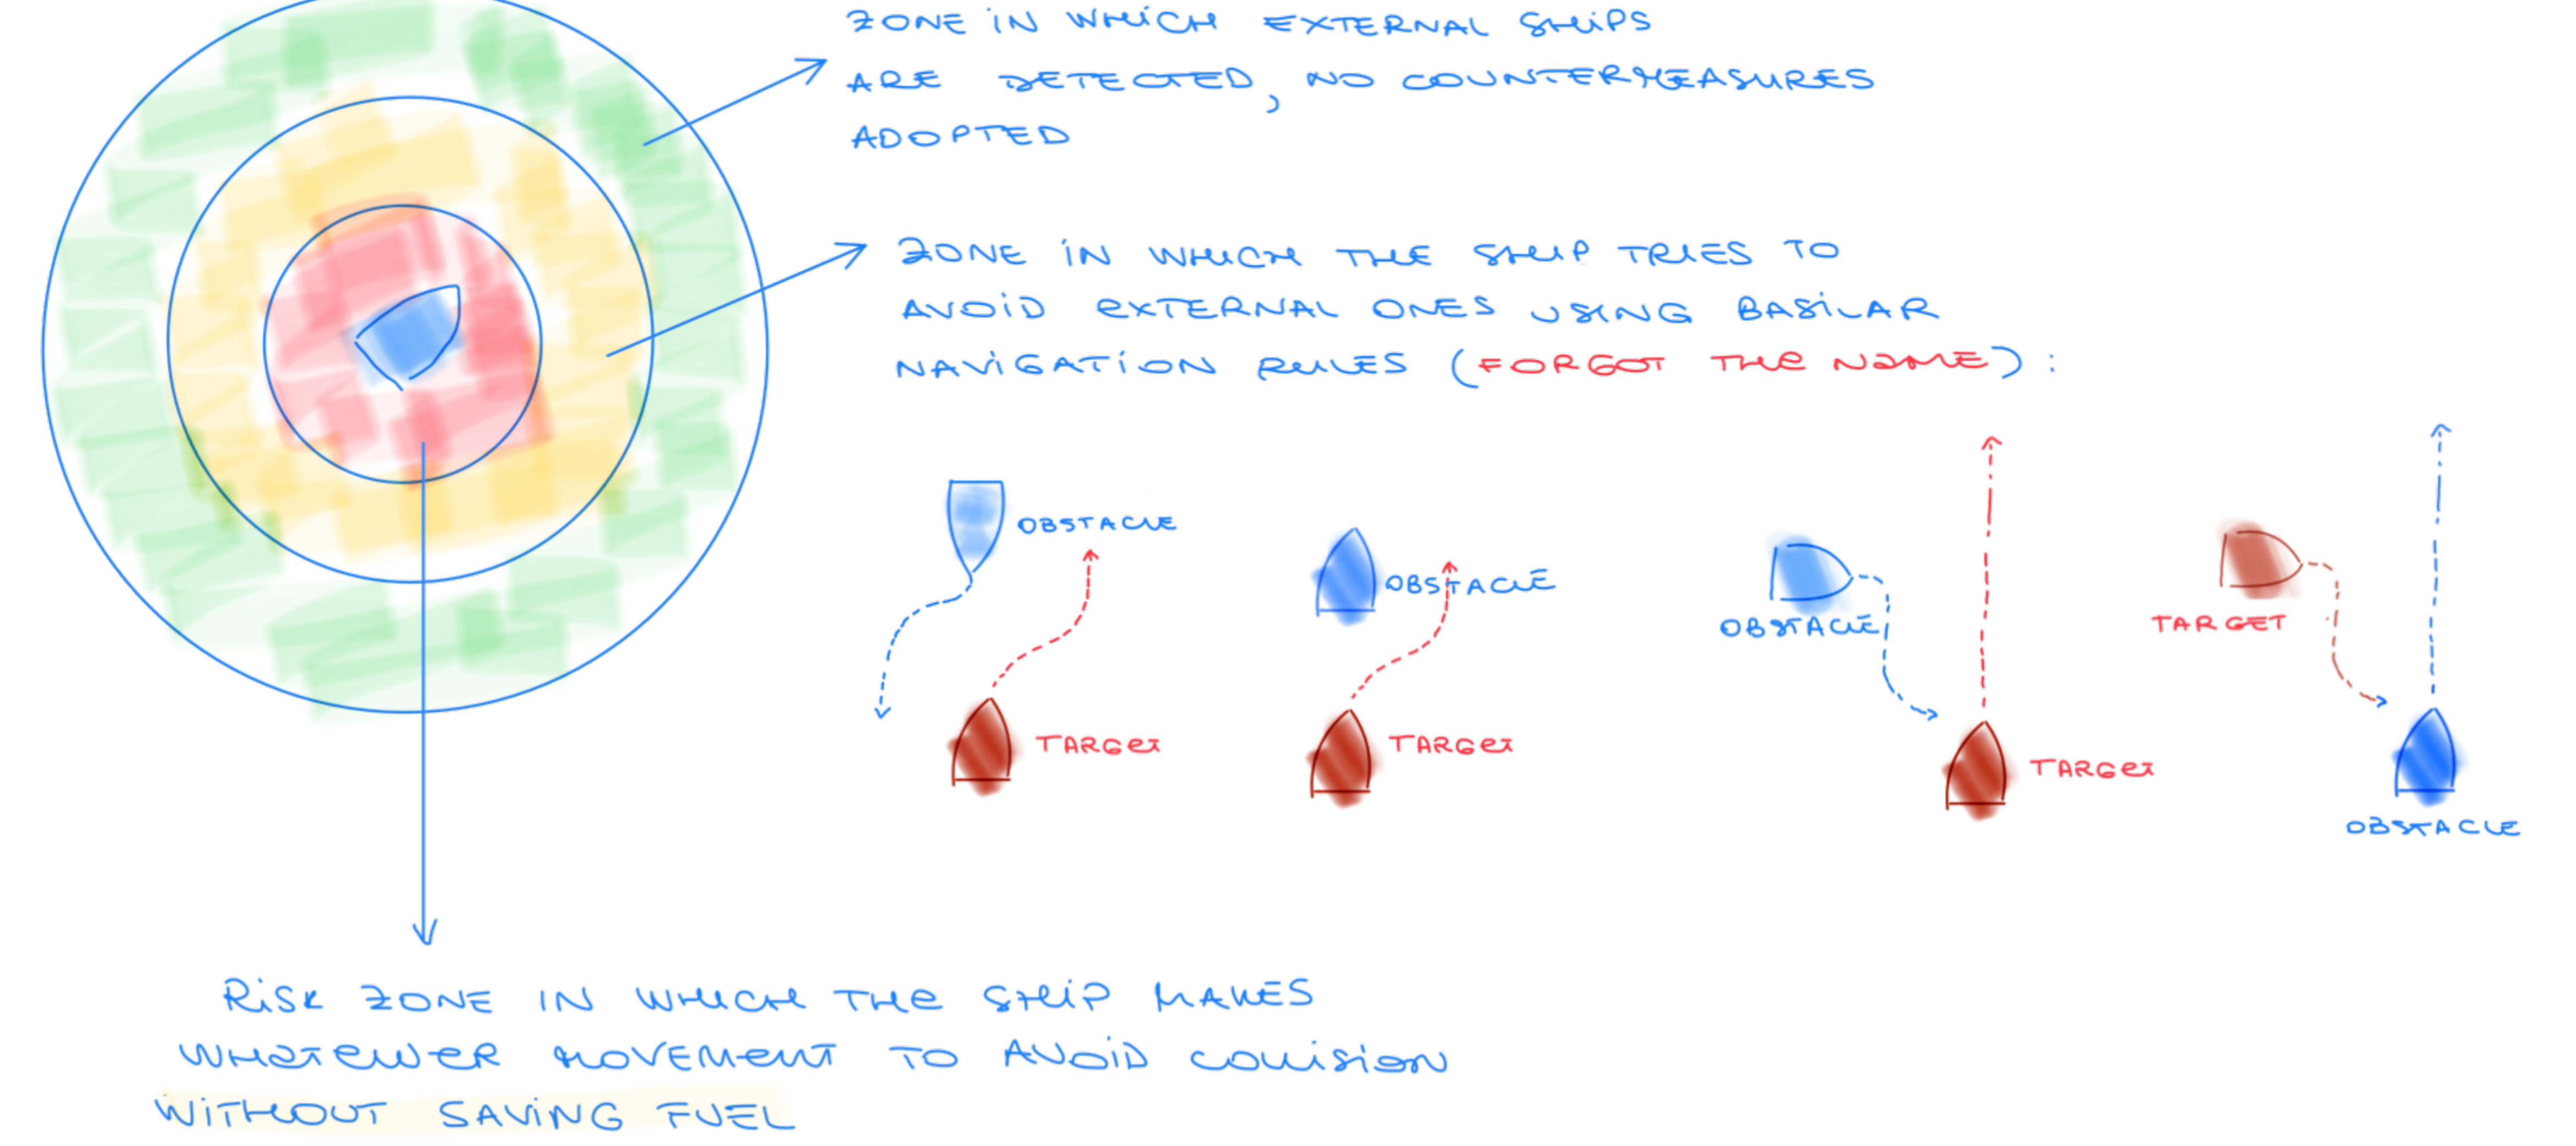 ZONE IN WHICH EXTERNAL SHIPS
ARE DETECTED, NO COUNTERMEASURES
ADOPTED
ZONE IN WHICH THE SHIP TRIES TO
AVOID EXTERNAL ONES USING BASILAR
NAVIGATION RULES (FORGOT THE NAME):
OBSTACLE
TARGET
OBSTACLE
TARGET
OBSTACLE
TARGET
TARGET
OBSTACLE
RISK ZONE IN WHICH THE SHIP MAKES
WHATEWER MOVEMENT TO AVOID COLLISION
WITHOUT SAVING FUEL